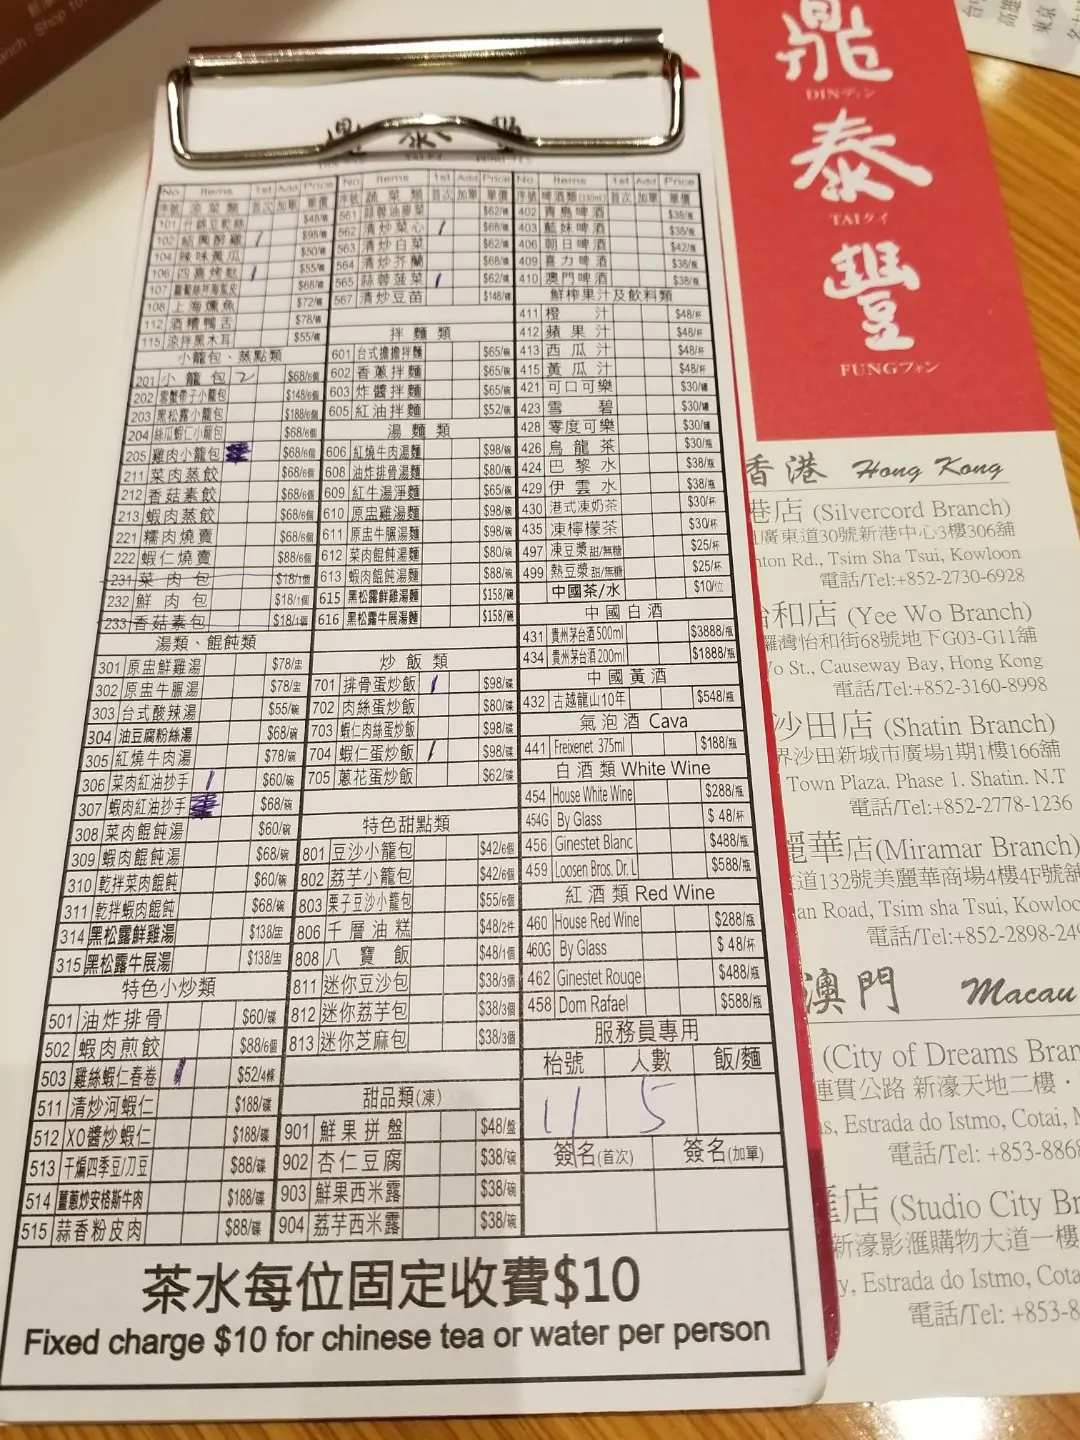 鼎 泰 豐
No. Items 1st Add Price
序號 涼菜類 首次 加單 單價
101 什錦豆乾絲 $48/碟
102 紹興醉雞 1 $98/碟
104 辣味黃瓜 $50/碟
106 四喜烤麩 1 $55/碟
107 $68/碟
108 上海燻魚 $72/碟
112 酒糟鴨舌 $78/碟
115 涼拌黑木耳 $55/碟
小籠包、蒸點類
201 小籠包 2 $68/6個
202 $148/6個
203 黑松露小籠包 $188/6個
204 絲瓜蝦仁小籠包 $68/6個
205 雞肉小籠包 $68/6個
211 菜肉蒸餃 $68/6個
212 香菇素餃 $68/6個
213 蝦肉蒸餃 $68/6個
221 糯肉燒賣 $68/6個
222 蝦仁燒賣 $88/6個
231 菜肉包 $18/1個
232 鮮肉包 $18/1個
233 香菇素包 $18/1個
湯類、餛飩類
301 原盅鮮雞湯 $78/盅
302 原盅牛腩湯 $78/盅
303 台式酸辣湯 $55/碗
304 油豆腐粉絲湯 $68/碗
305 紅燒牛肉湯 $78/碗
306 菜肉紅油抄手 1 $60/碗
307 蝦肉紅油抄手 $68/碗
308 菜肉餛飩湯 $60/碗
309 蝦肉餛飩湯 $68/碗
310 乾拌菜肉餛飩 $60/碗
311 乾拌蝦肉餛飩 $68/碗
314 黑松露鮮雞湯 $138/盅
315 黑松露牛展湯 $138/盅
特色小炒類
501 油炸排骨 $60/碟
502 蝦肉煎餃 $88/6個
503 雞絲蝦仁春卷 1 $52/4條
511 清炒河蝦仁 $188/碟
512 XO醬炒蝦仁 $188/碟
513 干煸四季豆/刀豆 $88/碟
514 薑蔥炒安格斯牛肉 $188/碟
515 蒜香粉皮肉 $88/碟
No. Items 1st Add Price
序號 蔬菜類 首次 加單 單價
561 蒜蓉油麥菜 $62/碟
562 清炒菜心 1 $68/碟
563 清炒白菜 $62/碟
564 清炒芥蘭 $68/碟
565 蒜蓉菠菜 1 $62/碟
567 清炒豆苗 $148/碟
拌麵類
601 台式擔擔拌麵 $65/碗
602 香蔥拌麵 $65/碗
603 炸醬拌麵 $65/碗
605 紅油拌麵 $52/碗
湯麵類
606 紅燒牛肉湯麵 $98/碗
608 油炸排骨湯麵 $80/碗
609 紅牛湯淨麵 $65/碗
610 原盅雞湯麵 $98/碗
611 原盅牛腩湯麵 $98/碗
612 菜肉餛飩湯麵 $80/碗
613 蝦肉餛飩湯麵 $88/碗
615 黑松露鮮雞湯麵 $158/碗
616 黑松露牛展湯麵 $158/碗
炒飯類
701 排骨蛋炒飯 1 $98/碟
702 肉絲蛋炒飯 $80/碟
703 蝦仁肉絲蛋炒飯 $98/碟
704 蝦仁蛋炒飯 1 $98/碟
705 蔥花蛋炒飯 $62/碟
特色甜點類
801 豆沙小籠包 $42/6個
802 荔芋小籠包 $42/6個
803 栗子豆沙小籠包 $55/6個
806 千層油糕 $48/2件
808 八寶飯 $48/1個
811 迷你豆沙包 $38/3個
812 迷你荔芋包 $38/3個
813 迷你芝麻包 $38/3個
甜品類(凍)
901 鮮果拼盤 $48/盤
902 杏仁豆腐 $38/碗
903 鮮果西米露 $38/碗
904 荔芋西米露 $38/碗
No. Items 1st Add Price
序號 啤酒類(330ml) 首次 加單 單價
402 青島啤酒 $38/瓶
403 藍妹啤酒 $38/瓶
406 朝日啤酒 $42/瓶
409 喜力啤酒 $38/瓶
410 澳門啤酒 $38/瓶
鮮榨果汁及飲料類
411 橙汁 $48/杯
412 蘋果汁 $48/杯
413 西瓜汁 $48/杯
415 黃瓜汁 $48/杯
421 可口可樂 $30/罐
423 雪碧 $30/罐
428 零度可樂 $30/罐
426 烏龍茶 $30/瓶
424 巴黎水 $38/瓶
429 伊雲水 $38/瓶
430 港式凍奶茶 $30/杯
435 凍檸檬茶 $30/杯
497 凍豆漿 甜/無糖 $25/杯
499 熱豆漿 甜/無糖 $25/杯
中國茶/水 $10/位
中國白酒
431 貴州茅台酒500ml $3888/瓶
434 貴州茅台酒200ml $1888/瓶
中國黃酒
432 古越龍山10年 $548/瓶
氣泡酒 Cava
441 Freixenet 375ml $188/瓶
白酒類 White Wine
454 House White Wine $288/瓶
454G By Glass $ 48/杯
456 Ginestet Blanc $488/瓶
459 Loosen Bros. Dr. L $588/瓶
紅酒類 Red Wine
460 House Red Wine $288/瓶
460G By Glass $ 48/杯
462 Ginestet Rouge $488/瓶
458 Dom Rafael $588/瓶
服務員專用
枱號 人數 飯/麵
11 5
簽名(首次) 簽名(加單)
茶水每位固定收費$10
Fixed charge $10 for chinese tea or water per person
鼎
DINディン
泰
TAIタイ
豐
FUNGフォン
香港 Hong Kong
港店 (Silvercord Branch)
廣東道30號新港中心3樓306舖
nton Rd., Tsim Sha Tsui, Kowloon
電話/Tel:+852-2730-6928
怡和店 (Yee Wo Branch)
羅灣怡和街68號地下G03-G11舖
o St., Causeway Bay, Hong Kong
電話/Tel:+852-3160-8998
沙田店 (Shatin Branch)
界沙田新城市廣場1期1樓166舖
Town Plaza. Phase 1. Shatin. N.T
電話/Tel:+852-2778-1236
麗華店(Miramar Branch)
道132號美麗華商場4樓4F號舖
an Road, Tsim sha Tsui, Kowloo
電話/Tel:+852-2898-249
澳門 Macau
(City of Dreams Bran
連貫公路 新濠天地二樓・
s, Estrada do Istmo, Cotai,
電話/Tel: +853-8868
匯店 (Studio City Br
新濠影滙購物大道一樓
y, Estrada do Istmo, Cota
電話/Tel: +853-8
高雄
東京